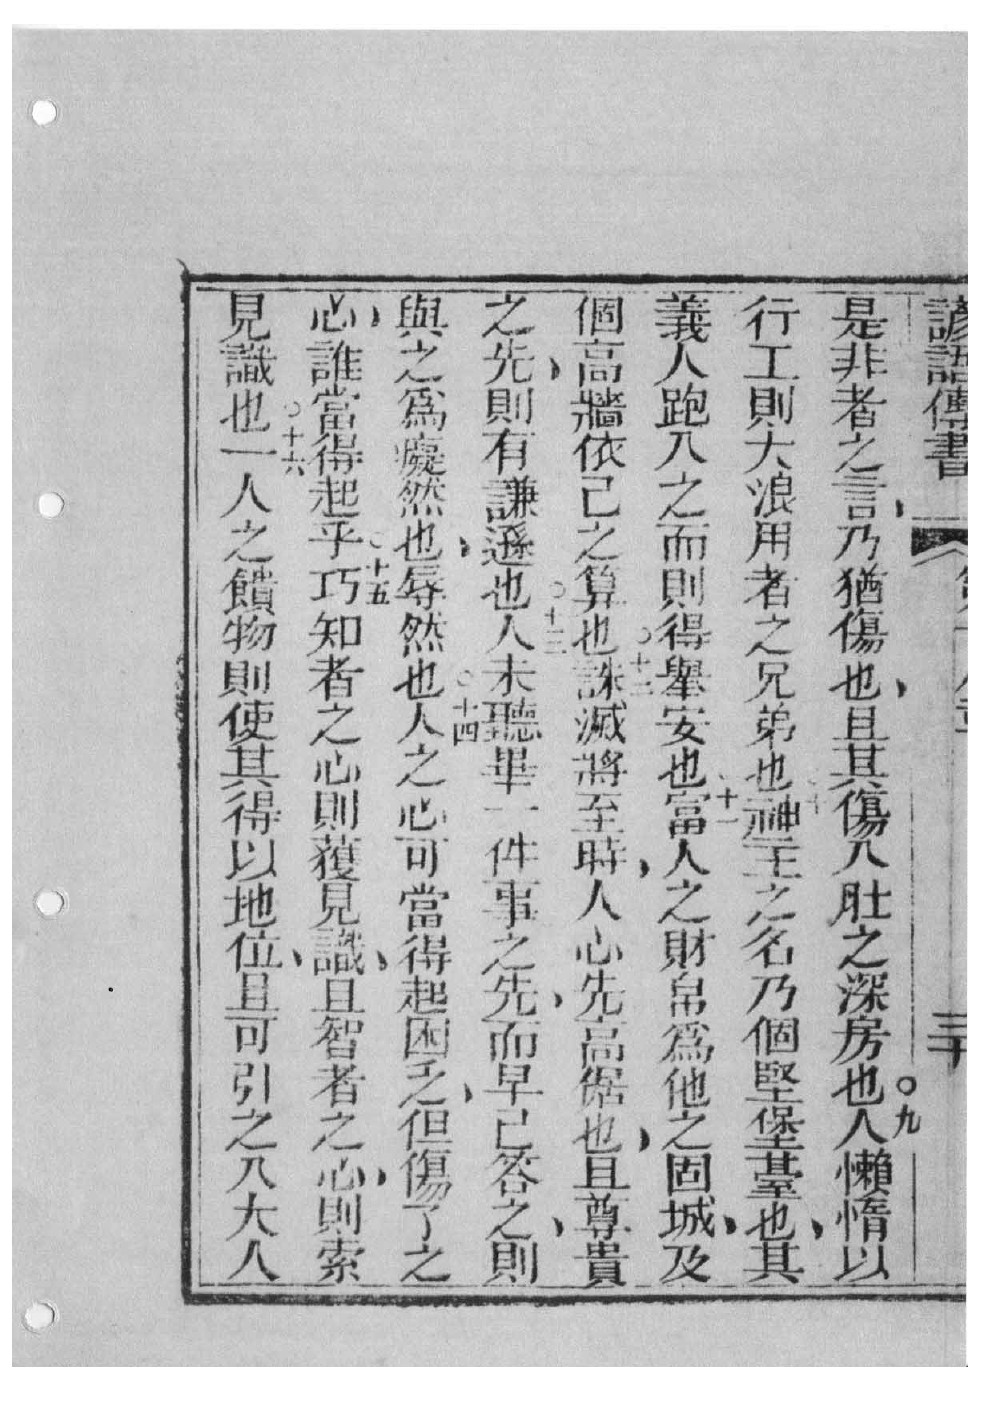 諺語傳書 三十
是非者之言、乃猶傷也、且其傷入肚之深房也○九人懶惰以
行工則大浪用者之兄弟也○十神主之名乃個堅堡臺也、其
義人跑入之而則得舉安也○十一富人之財帛爲他之固城、及
個高牆依己之算也○十二誅滅將至時、人心先高倨也、且尊貴
之先、則有謙遜也○十三人未聽畢一件事之先、而早已答之、則
與之爲癡然也、辱然也○十四人之心可當得起困乏、但傷了之
心、誰當得起乎○十五巧知者之心則獲見識、且智者之心、則索
見識也○十六一人之饋物則使其得以地位、且可引之入大人